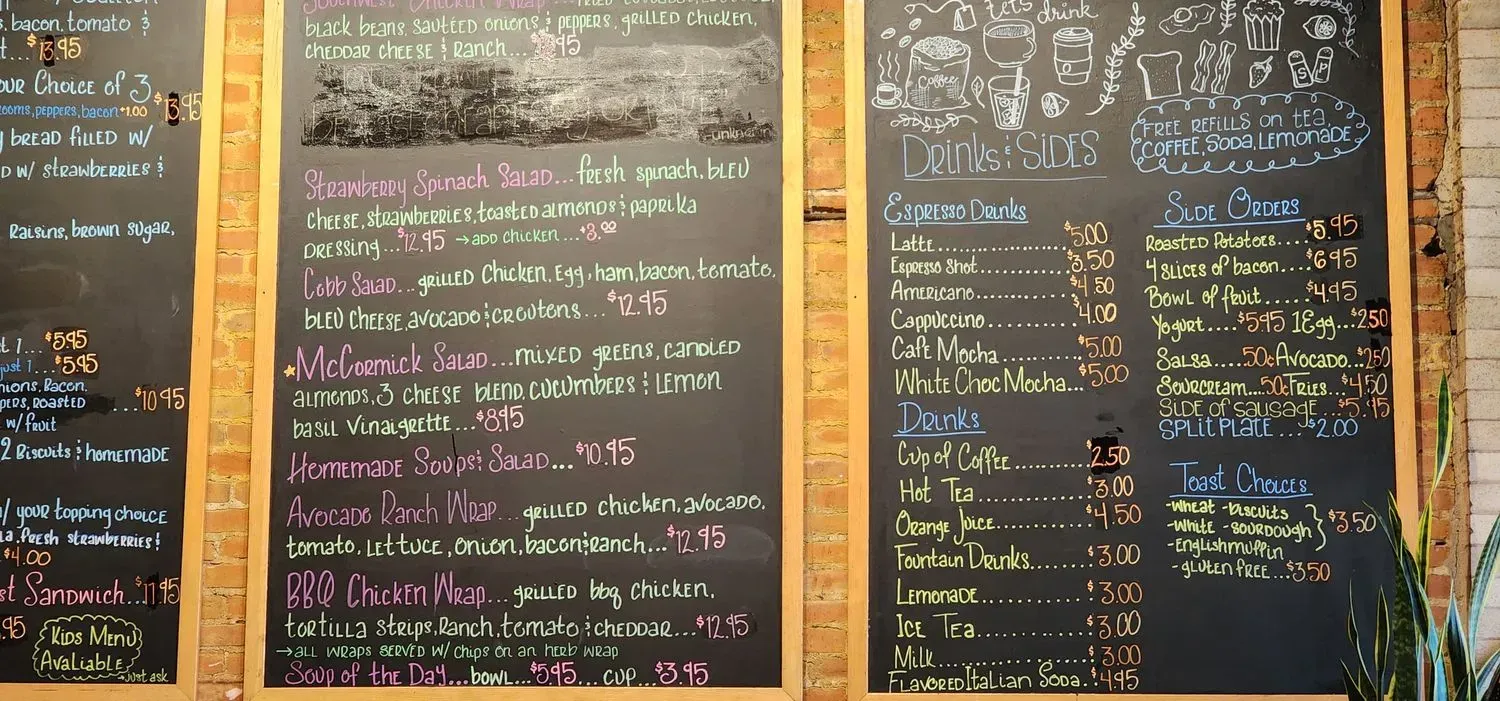 , bacon, tomato &
t... $13.95
our Choice of 3
ooms, peppers, bacon +1.00 $13.95
y bread filled w/
d w/ strawberries &
Raisins, brown sugar,
t 1... $5.95
just 1... $5.95
nions, Bacon,
pers, Roasted ...$10.95
w/ fruit
2 Biscuits & homemade
w/ your topping choice
la, fresh strawberries &
$4.00
st Sandwich...$11.95
.95
Kids Menu
Avaliable
just ask
Southwest Chicken Wrap...
black beans, sautéed onions & peppers, grilled chicken,
cheddar cheese & Ranch...
-unknown
Strawberry Spinach Salad...fresh spinach, bleu
cheese, strawberries, toasted almonds & paprika
dressing...$12.95 →add chicken...+3.00
Cobb Salad...grilled Chicken, Egg, ham, bacon, tomato,
bleu cheese, avocado & croutons...$12.95
McCormick Salad...mixed greens, candied
almonds, 3 cheese blend, cucumbers & Lemon
basil vinaigrette...$8.95
Homemade Soups & Salad...$10.95
Avocado Ranch Wrap...grilled chicken, avocado,
tomato, lettuce, onion, bacon & ranch...$12.95
BBQ Chicken Wrap...grilled bbq chicken,
tortilla strips, Ranch, tomato & cheddar...$12.95
→all wraps served w/ chips on an herb wrap
Soup of the Day...bowl...$5.95...cup...$3.95
let's drink
Coffee
S
Drinks & Sides
Free refills on tea,
coffee, soda, lemonade
Espresso Drinks
Latte...$5.00
Espresso Shot...$3.50
Americano...$4.50
Cappuccino...$4.00
Cafe Mocha...$5.00
White Choc Mocha...$5.00
Drinks
Cup of Coffee...2.50
Hot Tea...$3.00
Orange Juice...$4.50
Fountain Drinks...$3.00
Lemonade...$3.00
Ice Tea...$3.00
Milk...$3.00
Flavored Italian Soda...$4.95
Side Orders
Roasted Potatoes...$5.95
4 slices of bacon...$6.95
Bowl of fruit...$4.95
Yogurt...$5.95 1 Egg...$2.50
Salsa...50¢ Avocado...$2.50
Sourcream...50¢ Fries...$4.50
Side of sausage...$5.95
Split Plate...$2.00
Toast Choices
-wheat -biscuits
-white -sourdough $3.50
-English muffin
-gluten free...$3.50